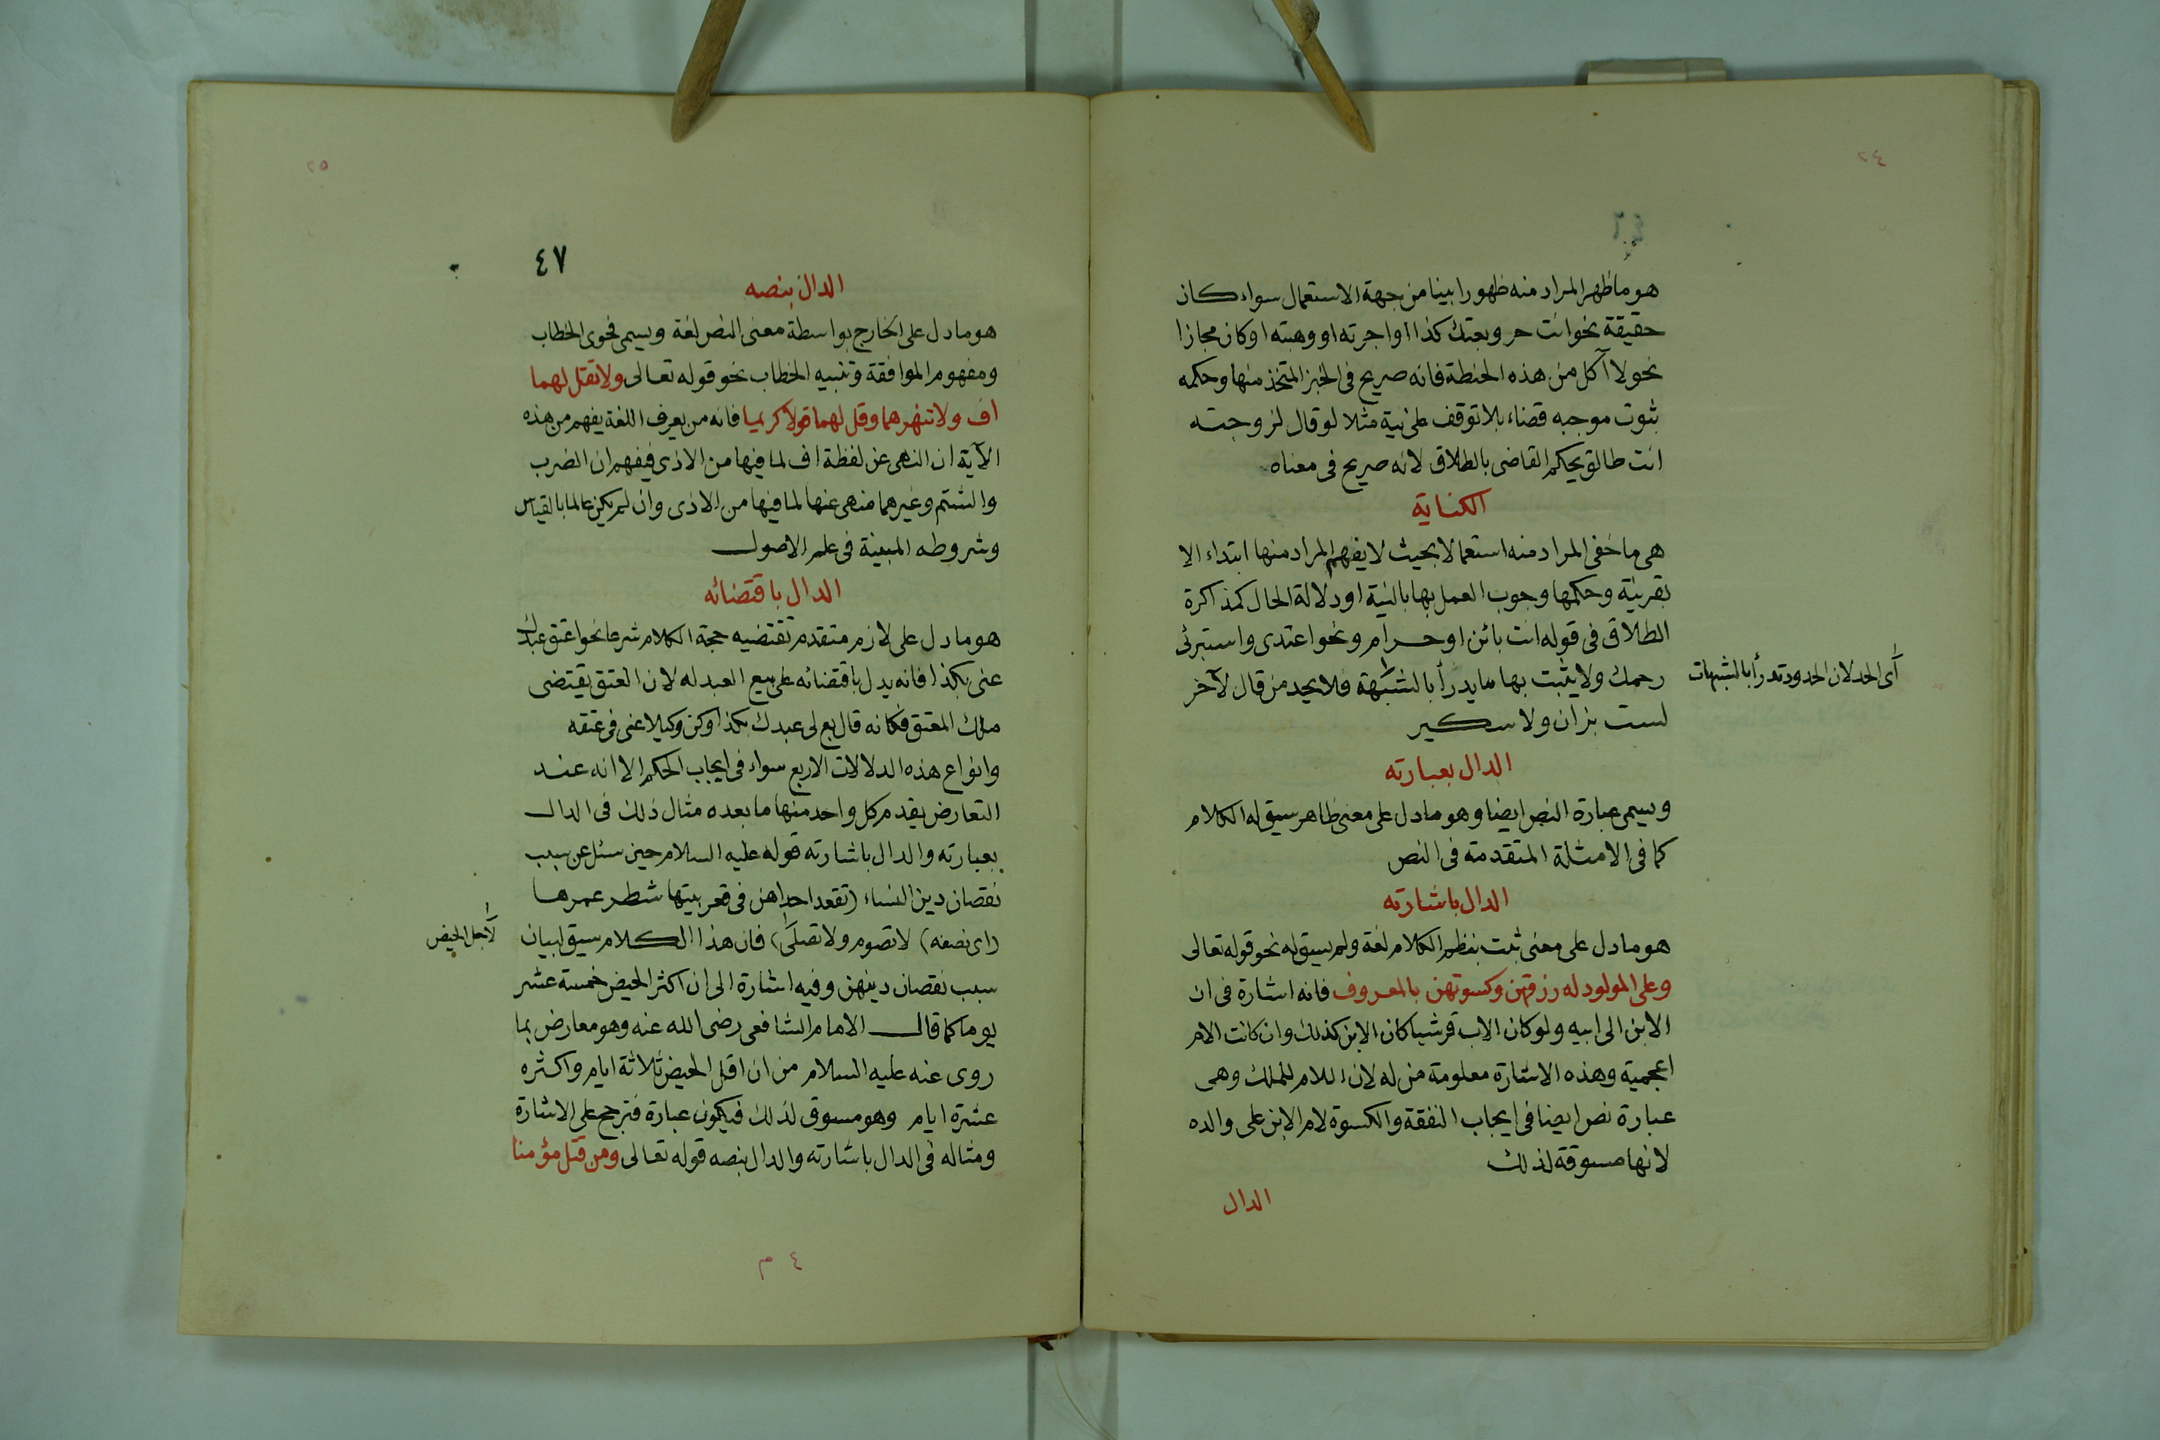 ٢٤
٤٦
هو ما ظهر المراد منه ظهورا بينا من جهة الاستعمال سواء كان
حقيقة نحو انت حر وبعتك كذا او اجرته او وهبته او كان مجازا
نحو لا آكل من هذه الحنطة فانه صريح فى الخبز المتخذ منها وحكمه
ثبوت موجبه قضاء بلا توقف على نية مثلا لو قال لزوجته
انت طالق يحكم القاضى بالطلاق لانه صريح فى معناه
الكناية
هى ما خفى المراد منه استعمالا بحيث لا يفهم المراد منها ابتداء الا
بقرينة وحكمها وجوب العمل بها بالنية او دلالة الحال كمذاكرة
الطلاق فى قوله انت بائن او حرام ونحو اعتدى واستبرئى
رحمك ولا يثبت بها ما يدرأ بالشبهة فلا يحد من قال لآخر
أى الحد لان الحدود تدرأ بالشبهات
لست بزان ولا سكير
الدال بعبارته
ويسمى عبارة النص ايضا وهو ما دل على معنى ظاهر سيق له الكلام
كما فى الامثلة المتقدمة فى النص
الدال باشارته
هو ما دل على معنى ثبت بنظم الكلام لغة ولم يسيق له نحو قوله تعالى
وعلى المولود له رزقهن وكسوتهن بالمعروف فانه اشارة فى ان
الابن الى ابيه ولو كان الاب قرشيا كان الابن كذلك وان كانت الام
اعجمية وهذه الاشارة معلومة من له لان اللام للملك وهى
عبارة نص ايضا فى ايجاب النفقة والكسوة لام الابن على والده
لانها مسوقة لذلك
الدال
٢٥
٤٧
الدال بنصه
هو ما دل على الخارج بواسطة معنى النص لغة ويسمى فحوى الخطاب
ومفهوم الموافقة وتنبيه الخطاب نحو قوله تعالى ولا تقل لهما
اف ولا تنهرهما وقل لهما قولا كريما فانه من يعرف اللغة يفهم من هذه
الآية ان النهى عن لفظة اف لما فيها من الاذى فيفهم ان الضرب
والشتم وغيرهما منهى عنها لما فيها من الاذى وان لم يكن عالما بالقياس
وشروطه المبينة فى علم الاصول
الدال باقتضائه
هو ما دل على لازم متقدم تقتضيه صحة الكلام شرعا نحو اعتق عبدك
عنى بكذا فانه يدل باقتضائه على بيع العبد له لان العتق يقتضى
ملك المعتق فكانه قال بع لى عبدك بكذا وكن وكيلا عنى فى عتقه
وانواع هذه الدلالات الاربع سواء فى ايجاب الحكم الا انه عند
التعارض يقدم كل واحد منها ما بعده مثال ذلك فى الدال
بعبارته والدال باشارته قوله عليه السلام حين سئل عن سبب
نقصان دين النساء (تقعد احداهن فى قعر بيتها شطر عمرها
(اى نصفه) لا تصوم ولا تصلى) فان هذا الكلام سيق لبيان
لأجل الحيض
سبب نقصان دينهن وفيه اشارة الى ان اكثر الحيض خمسة عشر
يوما كما قال الامام الشافعى رضى الله عنه وهو معارض بما
روى عنه عليه السلام من ان اقل الحيض ثلاثة ايام واكثره
عشرة ايام وهو مسوق لذلك فيكون عبارة فترجح على الاشارة
ومثاله فى الدال باشارته والدال بنصه قوله تعالى ومن قتل مؤمنا
٤ م